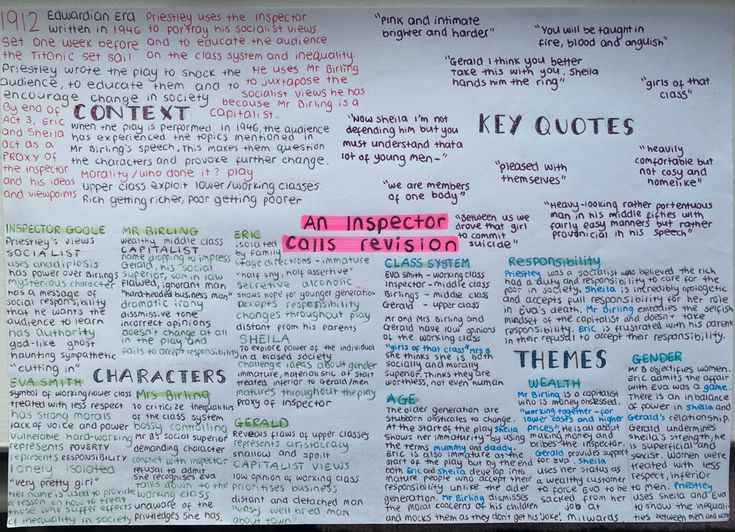 1912 Edwardian Era
Priestley uses the Inspector
written in 1946 to portray his socialist views
Set one week before and to educate the audience
the Titanic set sail on the class system and inequality.
Priestley wrote the play to shock the
audience, to educate them and to
encourage change in society
He uses Mr Birling
to juxtapose the
socialist views he has
because Mr Birling is a
capitalist.
By end of
Act 3, Eric
and Sheila
act as a
PROXY of
the inspector
and his ideas
and viewpoints
CONTEXT
when the play is performed in 1946, the audience
has experienced the topics mentioned in
Mr Birling's speech. This makes them question
the characters and provoke further change.
Morality/who done it? play
upper class exploit lower/working classes
Rich getting richer, poor getting poorer
"Pink and intimate
brighter and harder"
"You will be taught in
fire, blood and anguish"
"Gerald I think you better
take this with you. Sheila
hands him the ring"
"girls of that
class"
"Now Sheila i'm not
defending him but you
must understand that a
lot of young men-"
KEY QUOTES
"pleased with
themselves"
"heavily
comfortable but
not cosy and
homelike"
"we are members
of one body"
"Between us we
drove that girl
to commit
suicide"
"Heavy-looking rather portentous
man in his middle fifties with
fairly easy manners but rather
provincial in his speech"
An Inspector
Calls revision
INSPECTOR GOOLE
Priestley's views
SOCIALIST
uses anadiplosis
has power over Birlings
mysterious character
has a message of
social responsibility
that he wants the
audience to learn
has Authority
god-like ghost
haunting sympathetic
"cutting in"
MR BIRLING
wealthy middle class
CAPITALIST
name dropping to impress
Gerald, his social
superior, son in law
flawed, ignorant man
"hardheaded business man"
dramatic irony
dismissive tone
incorrect opinions
doesn't change at all
in the play and
fails to accept responsibility
ERIC
isolated
by family
stage directions - immature
"half shy, half assertive"
secretive alcoholic
shows hope for younger generation
accepts responsibility
changes throughout play
distant from his parents
SHEILA
To explore power of the individual
in a biased society
challenge ideas about gender
immature, materialistic at start
treated inferior to Gerald/men
matures throughout the play
proxy of inspector
CHARACTERS
EVA SMITH
symbol of working/lower class
treated with less respect
has strong morals
lack of voice and power
vulnerable hard-working
represents POVERTY
represents RESPONSIBILITY
lonely isolated
"very pretty girl"
her name is used to provide
reason on how to treat
those who suffer effects
of inequality in society
Mrs Birling
to criticize inequalities
of the class system
bossy controlling
Mr B's social superior
demanding character
conflict with inspector
refusal to admit
she recognises Eva
talks down to the
working class
unaware of the
privileges she has.
GERALD
Reveals flaws of upper classes
represents aristocracy
shallow and spoilt
CAPITALIST VIEWS
low opinion of working class
prioritises business
distant and detached man
"easy well bred man
about town"
CLASS SYSTEM
Eva Smith - working class
Inspector - middle class
Birlings - middle class
Gerald - upper class
Mr and Mrs Birling and
Gerald have low opinions
of the working class
"girls of that class" Mrs B
She thinks she is both
socially and morally
superior. Thinks they are
worthless, not even human
Responsibility
Priestley was a socialist who believed the rich
had a duty and responsibility to care for the
poor in society. Sheila is incredibly apologetic
and accepts full responsibility for her role
in Eva's death. Mr Birling embodies the selfish
mindset of the capitalist and doesn't take
responsibility. Eric is frustrated with his parents
in their refusal to accept their responsibility.
THEMES
AGE
The older generation are
stubborn obstacles to change.
At the start of the play Sheila
shows her immaturity by using
the terms mummy and daddy.
Eric is also immature at the
start of the play but by the end
both Eric and Sheila develop into
mature people who accept their
responsibility unlike the older
generation. Mr Birling dismisses
the moral concerns of his children
and mocks them as they don't get his 'joke'.
WEALTH
Mr Birling is a capitalist
who is money obsessed.
"working together - for
lower costs and higher
prices", he is all about
making money and
bribes the inspector.
Gerald provides support
for Eva. Sheila
uses her status as
a wealthy customer
to force Eva to be
sacked from her
job at
Milwards
GENDER
Mr B objectifies women.
Eric admits the affair
with Eva was a game.
There is an imbalance
of power in Sheila and
Gerald's relationship.
Gerald undermines
Sheila's strength, he
is superficial and
sexist. Women were
treated with less
respect, inferior
to men. Priestley
uses Sheila and Eva
to show the inequali-
ties between men and